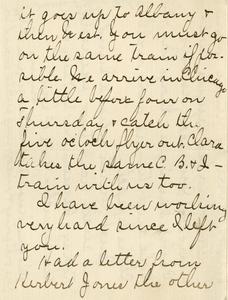 it goes up to Albany &
then west. You must go
on the same train if pos-
sible. We arrive in Chicago
a little before four on
Thursday & catch the
five o'clock flyer out. Clara
takes the same C. B. & I-
train with us too.
I have been working
very hard since I left
you.
Had a letter from
Herbert Jones the other